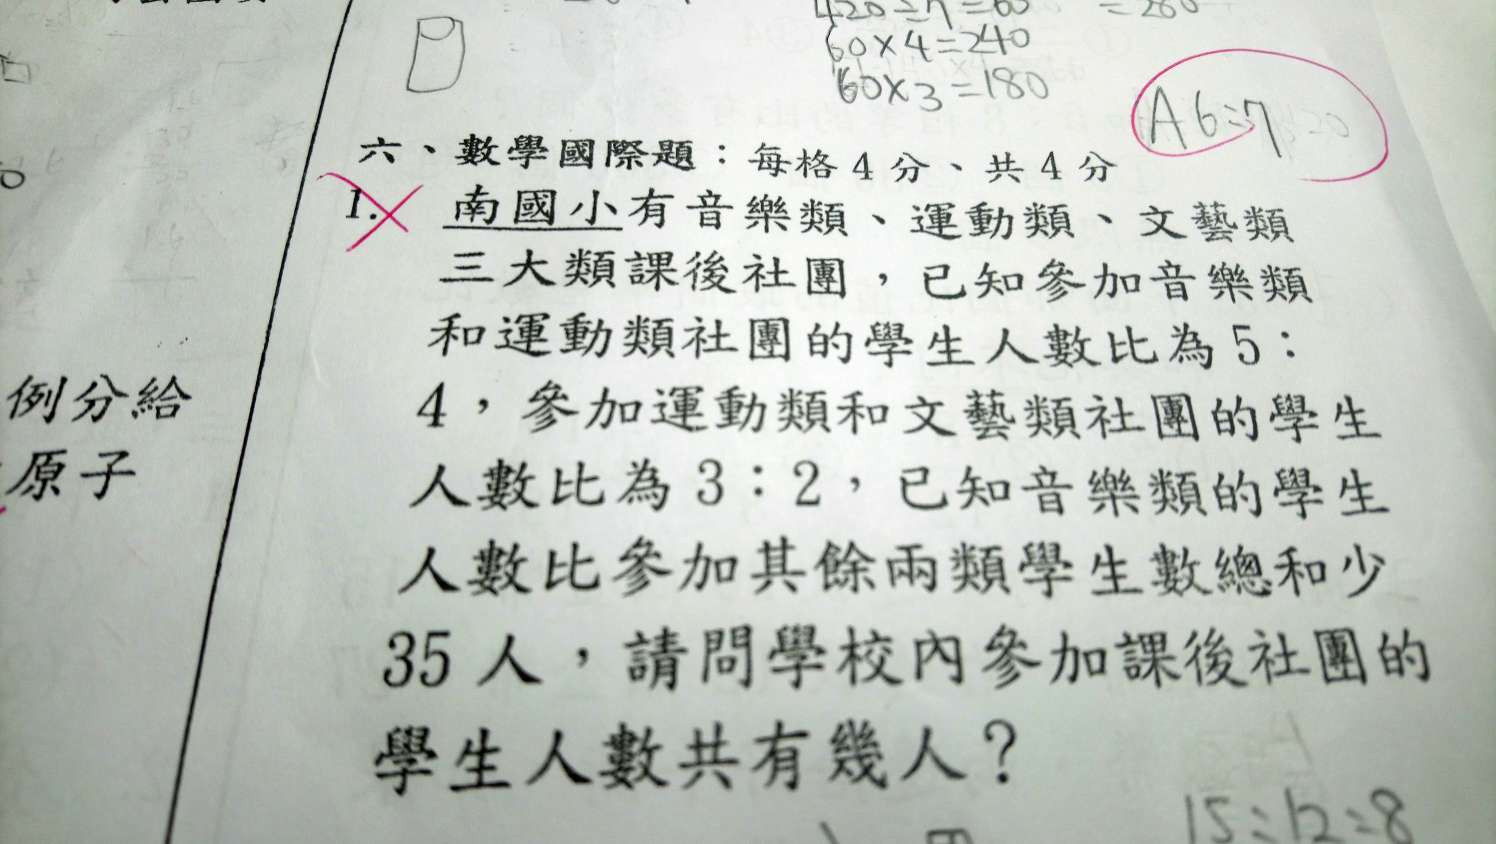 420÷7=60
60×4=240
60×3=180
A 6:7
六、數學國際題：每格4分、共4分
1. 南國小有音樂類、運動類、文藝類
三大類課後社團，已知參加音樂類
和運動類社團的學生人數比為5：
4，參加運動類和文藝類社團的學生
人數比為3：2，已知音樂類的學生
人數比參加其餘兩類學生數總和少
35人，請問學校內參加課後社團的
學生人數共有幾人？
15:12:8
例分給
原子